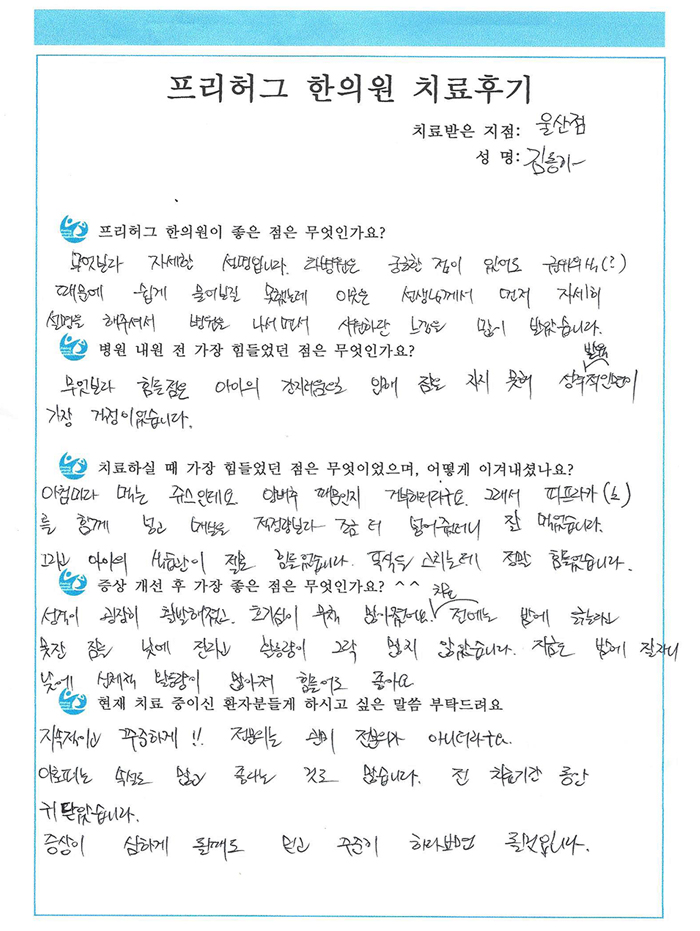 프리허그 한의원 치료후기
치료받은 지점: 울산점
성 명:
프리허그 한의원이 좋은 점은 무엇인가요?
무엇보다 자세한 설명입니다. 타병원은 궁금한 점이 있어도 (?)
때문에 쉽게 물어보질 못했는데 이곳은 선생님께서 먼저 자세히
설명을 해주셔서 병원을 나서면서 시원하단 느낌을 많이 받았습니다.
병원 내원 전 가장 힘들었던 점은 무엇인가요?
발육
무엇보다 힘든점은 아이의 간지러움으로 인해 잠도 자지 못해 성장적인면이
가장 걱정이었습니다.
치료하실 때 가장 힘들었던 점은 무엇이었으며, 어떻게 이겨내셨나요?
아침마다 먹는 쥬스인데요 양배추 때문인지 거부하더라구요. 그래서 파프리카
를 함께 넣고 적정량보다 조금 더 넣어주었더니 잘 먹었습니다.
그리고 아이의 식습관이 젤로 힘들었습니다. 정말 힘들었습니다.
증상 개선 후 가장 좋은 점은 무엇인가요? ^^
치료
성격이 굉장히 활발해졌고. 호기심이 무척 많아졌어요. 전에는 밤에 긁느라고
못잔 잠을 낮에 잔다고 활동량이 그닥 많지 않았습니다. 지금은 밤에 잘자니
낮에 신체적 활동량이 많아져 힘들어도 좋아요
현재 치료 중이신 환자분들게 하시고 싶은 말씀 부탁드려요
지속적이고 꾸준하게!! 전문의는 괜히 전문의가 아니더라구요.
아토피는 속설도 많고 좋다는 것도 많습니다. 전 치료기간 동안
귀 닫았습니다.
증상이 심하게 될때도 믿고 꾸준히 하다보면 좋을것입니다.